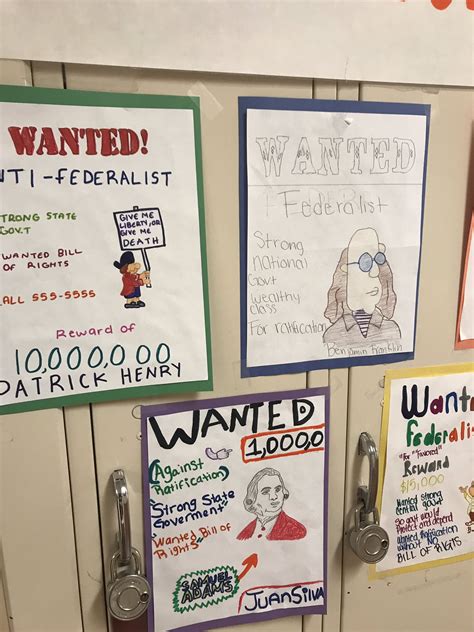 WANTED!
NTI-FEDERALIST
TRONG STATE
GOV.T
WANTED BILL
OF RIGHTS
CALL 555-5555
GIVE ME
LIBERTY, OR
GIVE ME
DEATH
Reward of
10,000,000
PATRICK HENRY
WANTED
Federalist
Strong
national
Govt
wealthy
class
For ratification
Benjamin Franklin
WANTED
1,000,0
(Against
Ratification)
Strong State
Goverment
Wanted Bill of
Rights
SAMUEL
ADAMS
JuanSilva
Want
federalis
"For "Favored"
Reward
$15,000
Wanted strong
central govt
So govt would
Protect and defend
Wanted Ratification
without NO
BILL OF RIGHTS